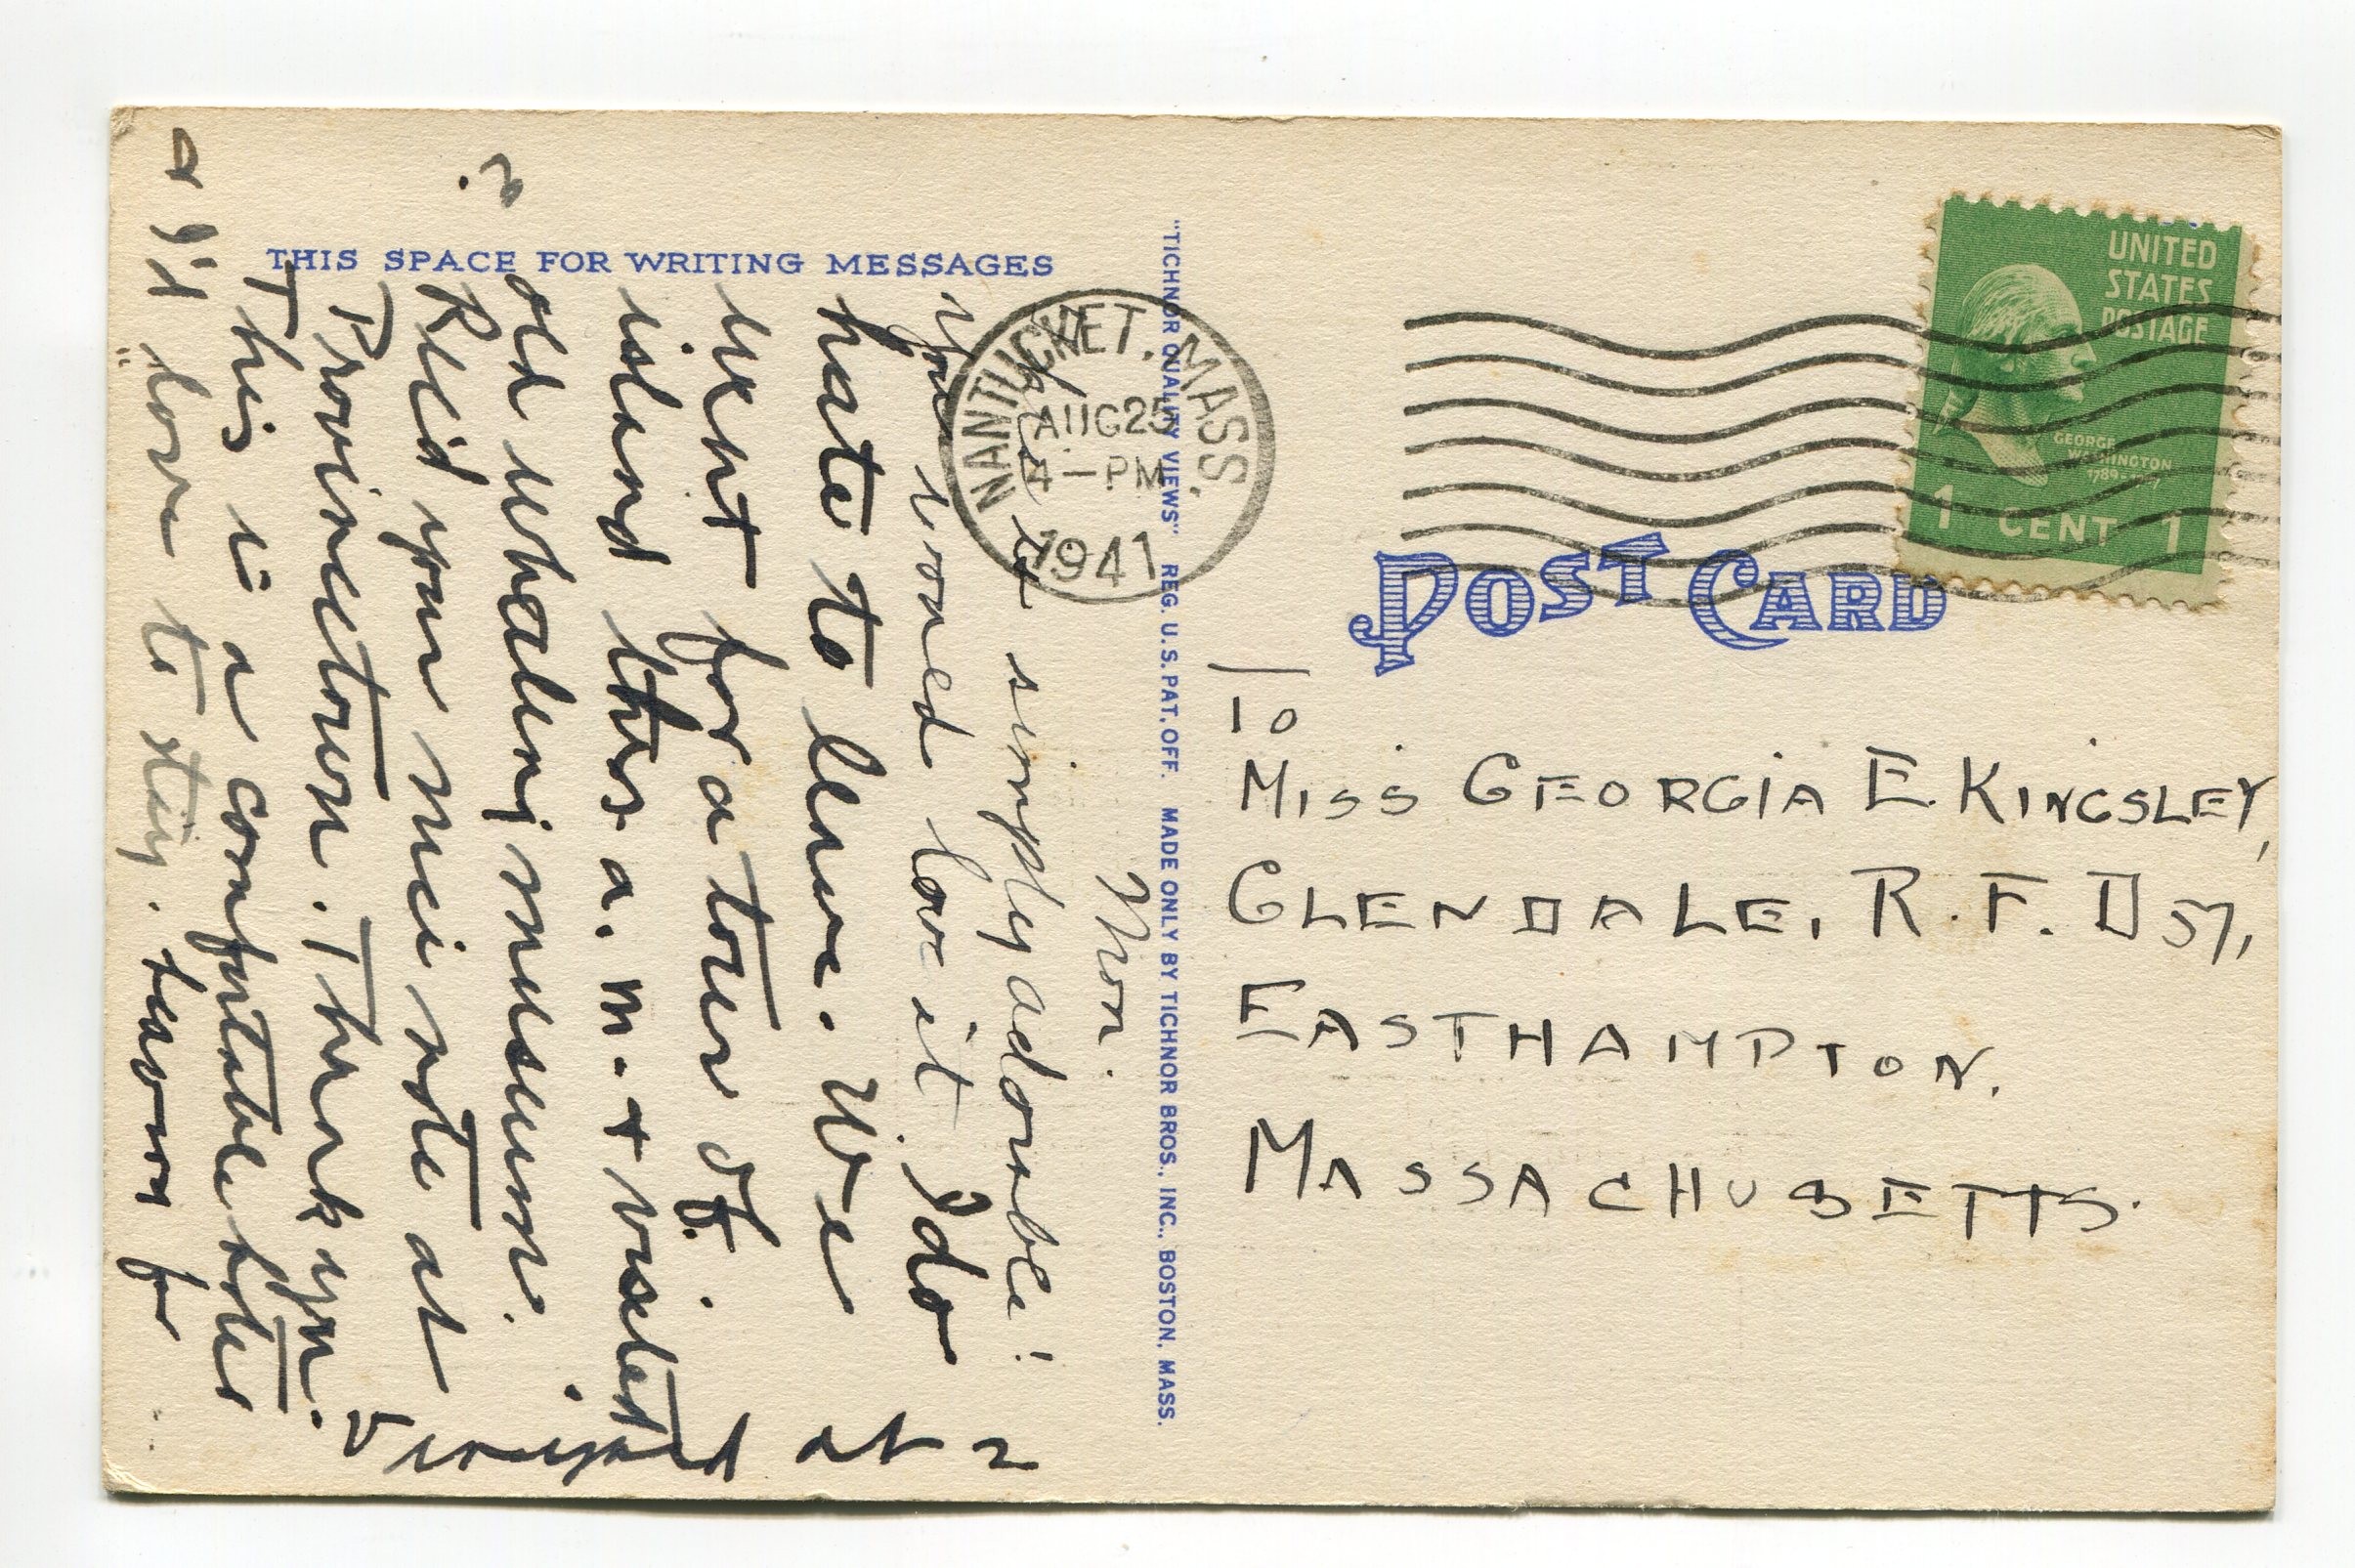 THIS SPACE FOR WRITING MESSAGES
Mon.
This is simply adorable!
You would love it. I do
hate to leave. We
went for a tour of
island this a.m. + visited
old whaling museum.
Rec'd your nice note at
Provincetown. Thank you.
This is a comfortable hotel
& I'd love to stay. Leaving for
at 2
"TICHNOR QUALITY VIEWS" REG. U.S. PAT. OFF. MADE ONLY BY TICHNOR BROS., INC., BOSTON, MASS.
NANTUCKET, MASS.
AUG 25
4-PM
1941
UNITED
STATES
POSTAGE
GEORGE
WASHINGTON
1 CENT 1
POST CARD
TO
MISS GEORGIA E. KINGSLEY,
GLENDALE, R.F.D ST,
EASTHAMPTON.
MASSACHUSETTS.